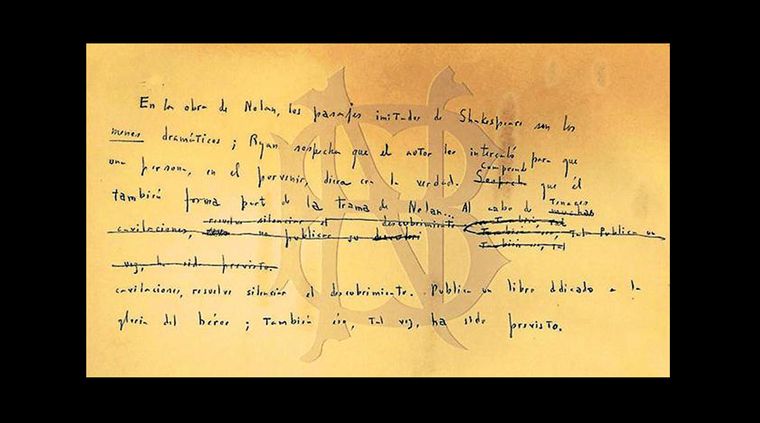 En la obra de Nolan, los pasajes imitados de Shakespeare son los
menos dramáticos; Ryan sospecha que el autor los intercaló para que
Comprende
una persona, en el porvenir, diera con la verdad. Sospecha que él
tenaces
también forma parte de la trama de Nolan... Al cabo de muchas
resuelve silenciar el descubrimiento También tal
cavilaciones, no publicar su También eso, tal Publica un
También eso, tal
vez, ha sido previsto.
cavilaciones, resuelve silenciar el descubrimiento. Publica un libro dedicado a la
gloria del héroe; también eso, tal vez, ha sido previsto.